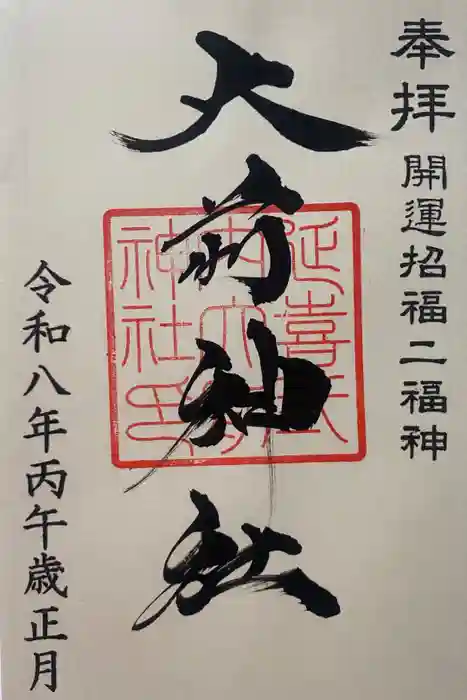 奉拝 開運招福二福神
大前神社
延喜式
内大前
神社印
令和八年丙午歳正月